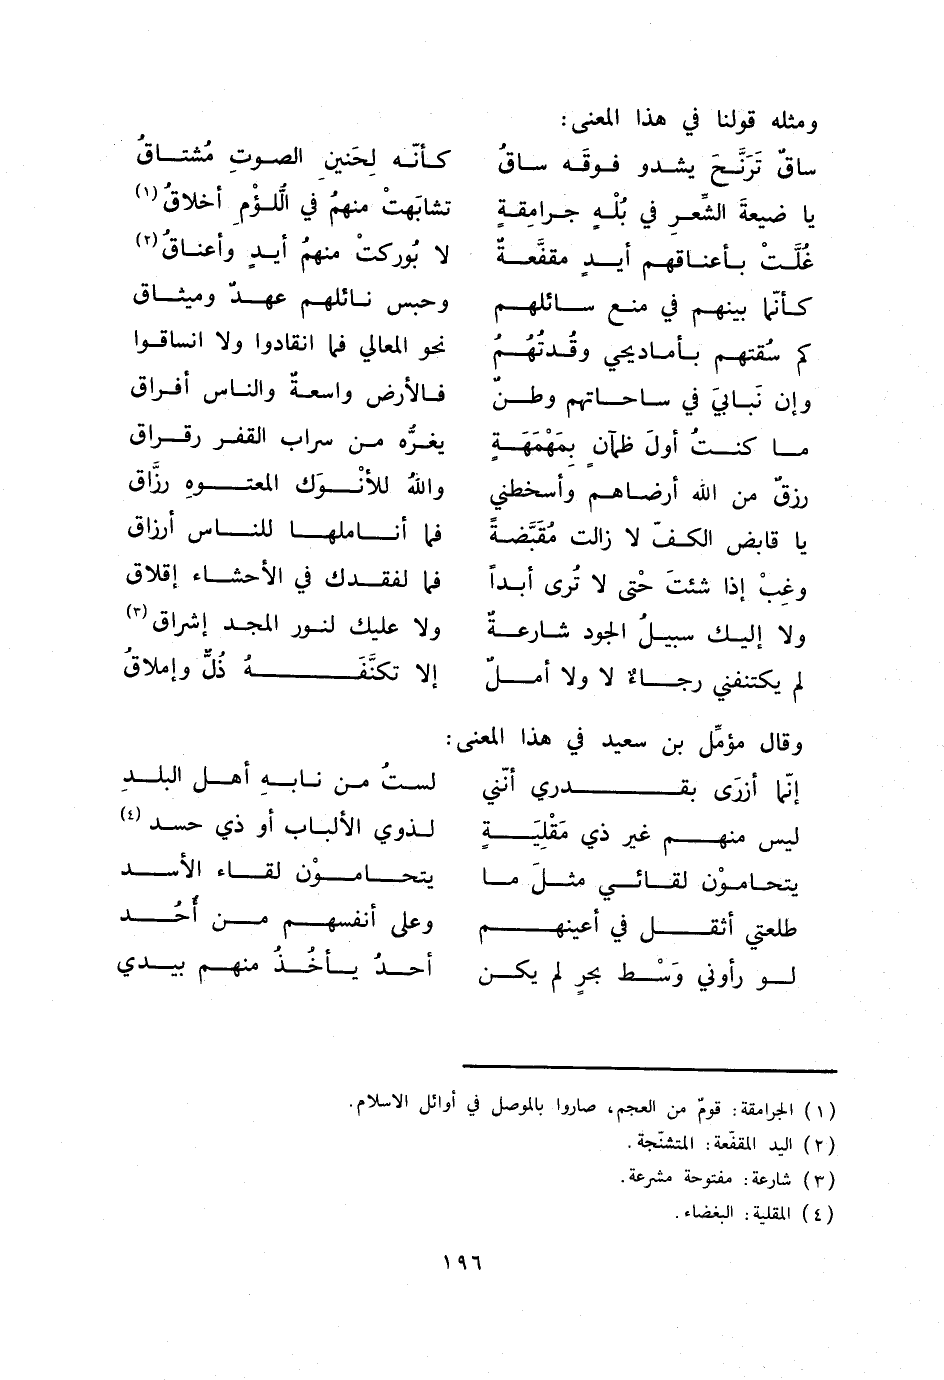 ومثله قولنا في هذا المعنى:
ساقٌ تَرَنَّحَ يشدو فوقَه ساقُ كأنّه لِحَنينِ الصوتِ مُشتاقُ
يا ضيعةَ الشِّعرِ في بُلْهٍ جرامقةٍ تشابَهتْ منهمُ في الُّلؤْمِ أخلاقُ (١)
غُلَّتْ بأعناقهم أيدٍ مقفَّعةٌ لا بُوركتْ منهمُ أيدٍ وأعناقُ (٢)
كأنّما بينهم في منع سائلهم وحبس نائلهم عهدٌ وميثاق
كم سُقتهم بأماديحي وقُدتُهُمُ نحو المعالي فما انقادوا ولا انساقوا
وإن نَبَابيَ في ساحاتهم وطنٌ فالأرض واسعةٌ والناس أفراق
ما كنتُ أولَ ظمآن بِمَهْمَهَةٍ يغرُّه من سراب القفر رقراق
رزقٌ من الله أرضاهم وأسخطني واللهُ للأنْوَك المعتوهِ رزَّاق
يا قابض الكفّ لا زالت مُقَبَّضةً فما أناملها للناس أرزاق
وغِبْ إذا شئتَ حْتى لا تُرى أبداً فما لفقدك في الأحشاء إقلاق
ولا إليك سبيلُ الجود شارعةٌ ولا عليك لنور المجد إشراق (٣)
لم يكتنفني رجاءٌ لا ولا أملٌ إلا تكنَّفَهُ ذُلٌّ وإملاقُ
وقال مؤمِّل بن سعيد في هذا المعنى:
إنّما أزرَى بقدري أنّني لستُ من نابهِ أهل البلدِ
ليس منهم غير ذي مَقْلِيَةٍ لذوي الألباب أو ذي حسد (٤)
يتحاموْن لقائي مثلَ ما يتحاموْن لقاء الأسد
طلعتي أثقل في أعينهم وعلى أنفسهم من أُحُد
لو رأوني وَسْط بحرٍ لم يكن أحدُ يأخُذُ منهم بيدي
(١) الجرامقة: قومٌ من العجم، صاروا بالموصل في أوائل الاسلام.
(٢) اليد المقفّعة: المتشنّجة.
(٣) شارعة: مفتوحة مشرعة.
(٤) المقلية: البغضاء.
١٩٦